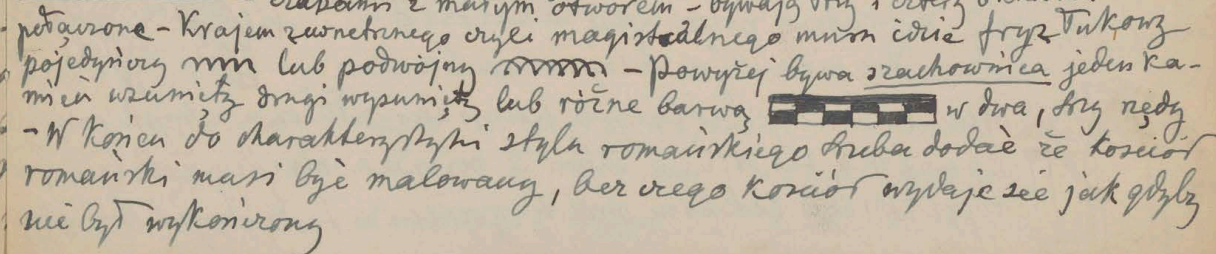 z małym otworem – bywają trzy i cztery
połączone – Krajem zewnetrznego czyli magistralnego muru idzie fryz łukowy
pojedyńczy lub podwójny – Powyżej bywa szachownica jeden ka-
mień wsunięty drugi wysunięty lub różne barwą w dwa, trzy rzędy
– W końcu do charakterystyki stylu romańskiego trzeba dodać że kościół
romański musi być malowany, bez czego kościół wydaje się jak gdyby
nie był wykończony